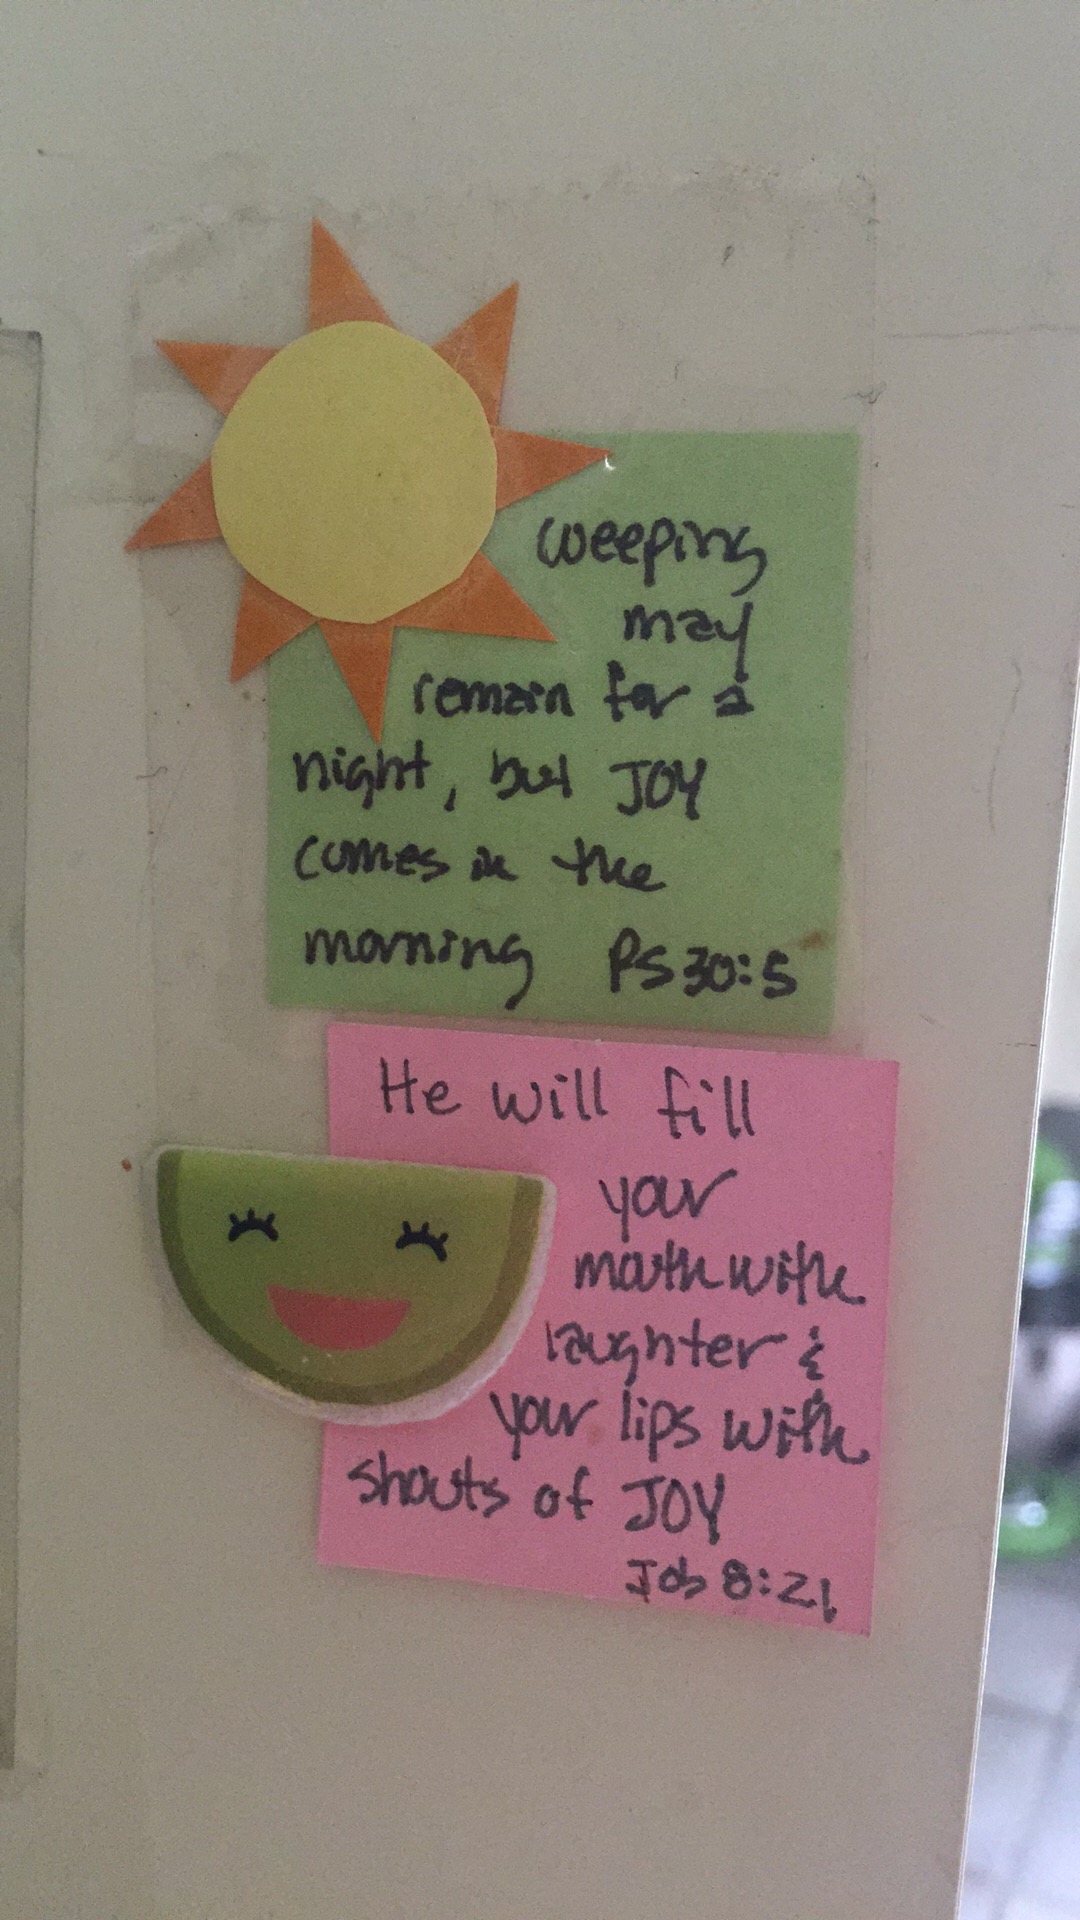 weeping
may
remain for a
night, but JOY
comes in the
morning PS 30:5
He will fill
your
mouth with
laughter &
your lips with
shouts of JOY
Job 8:21